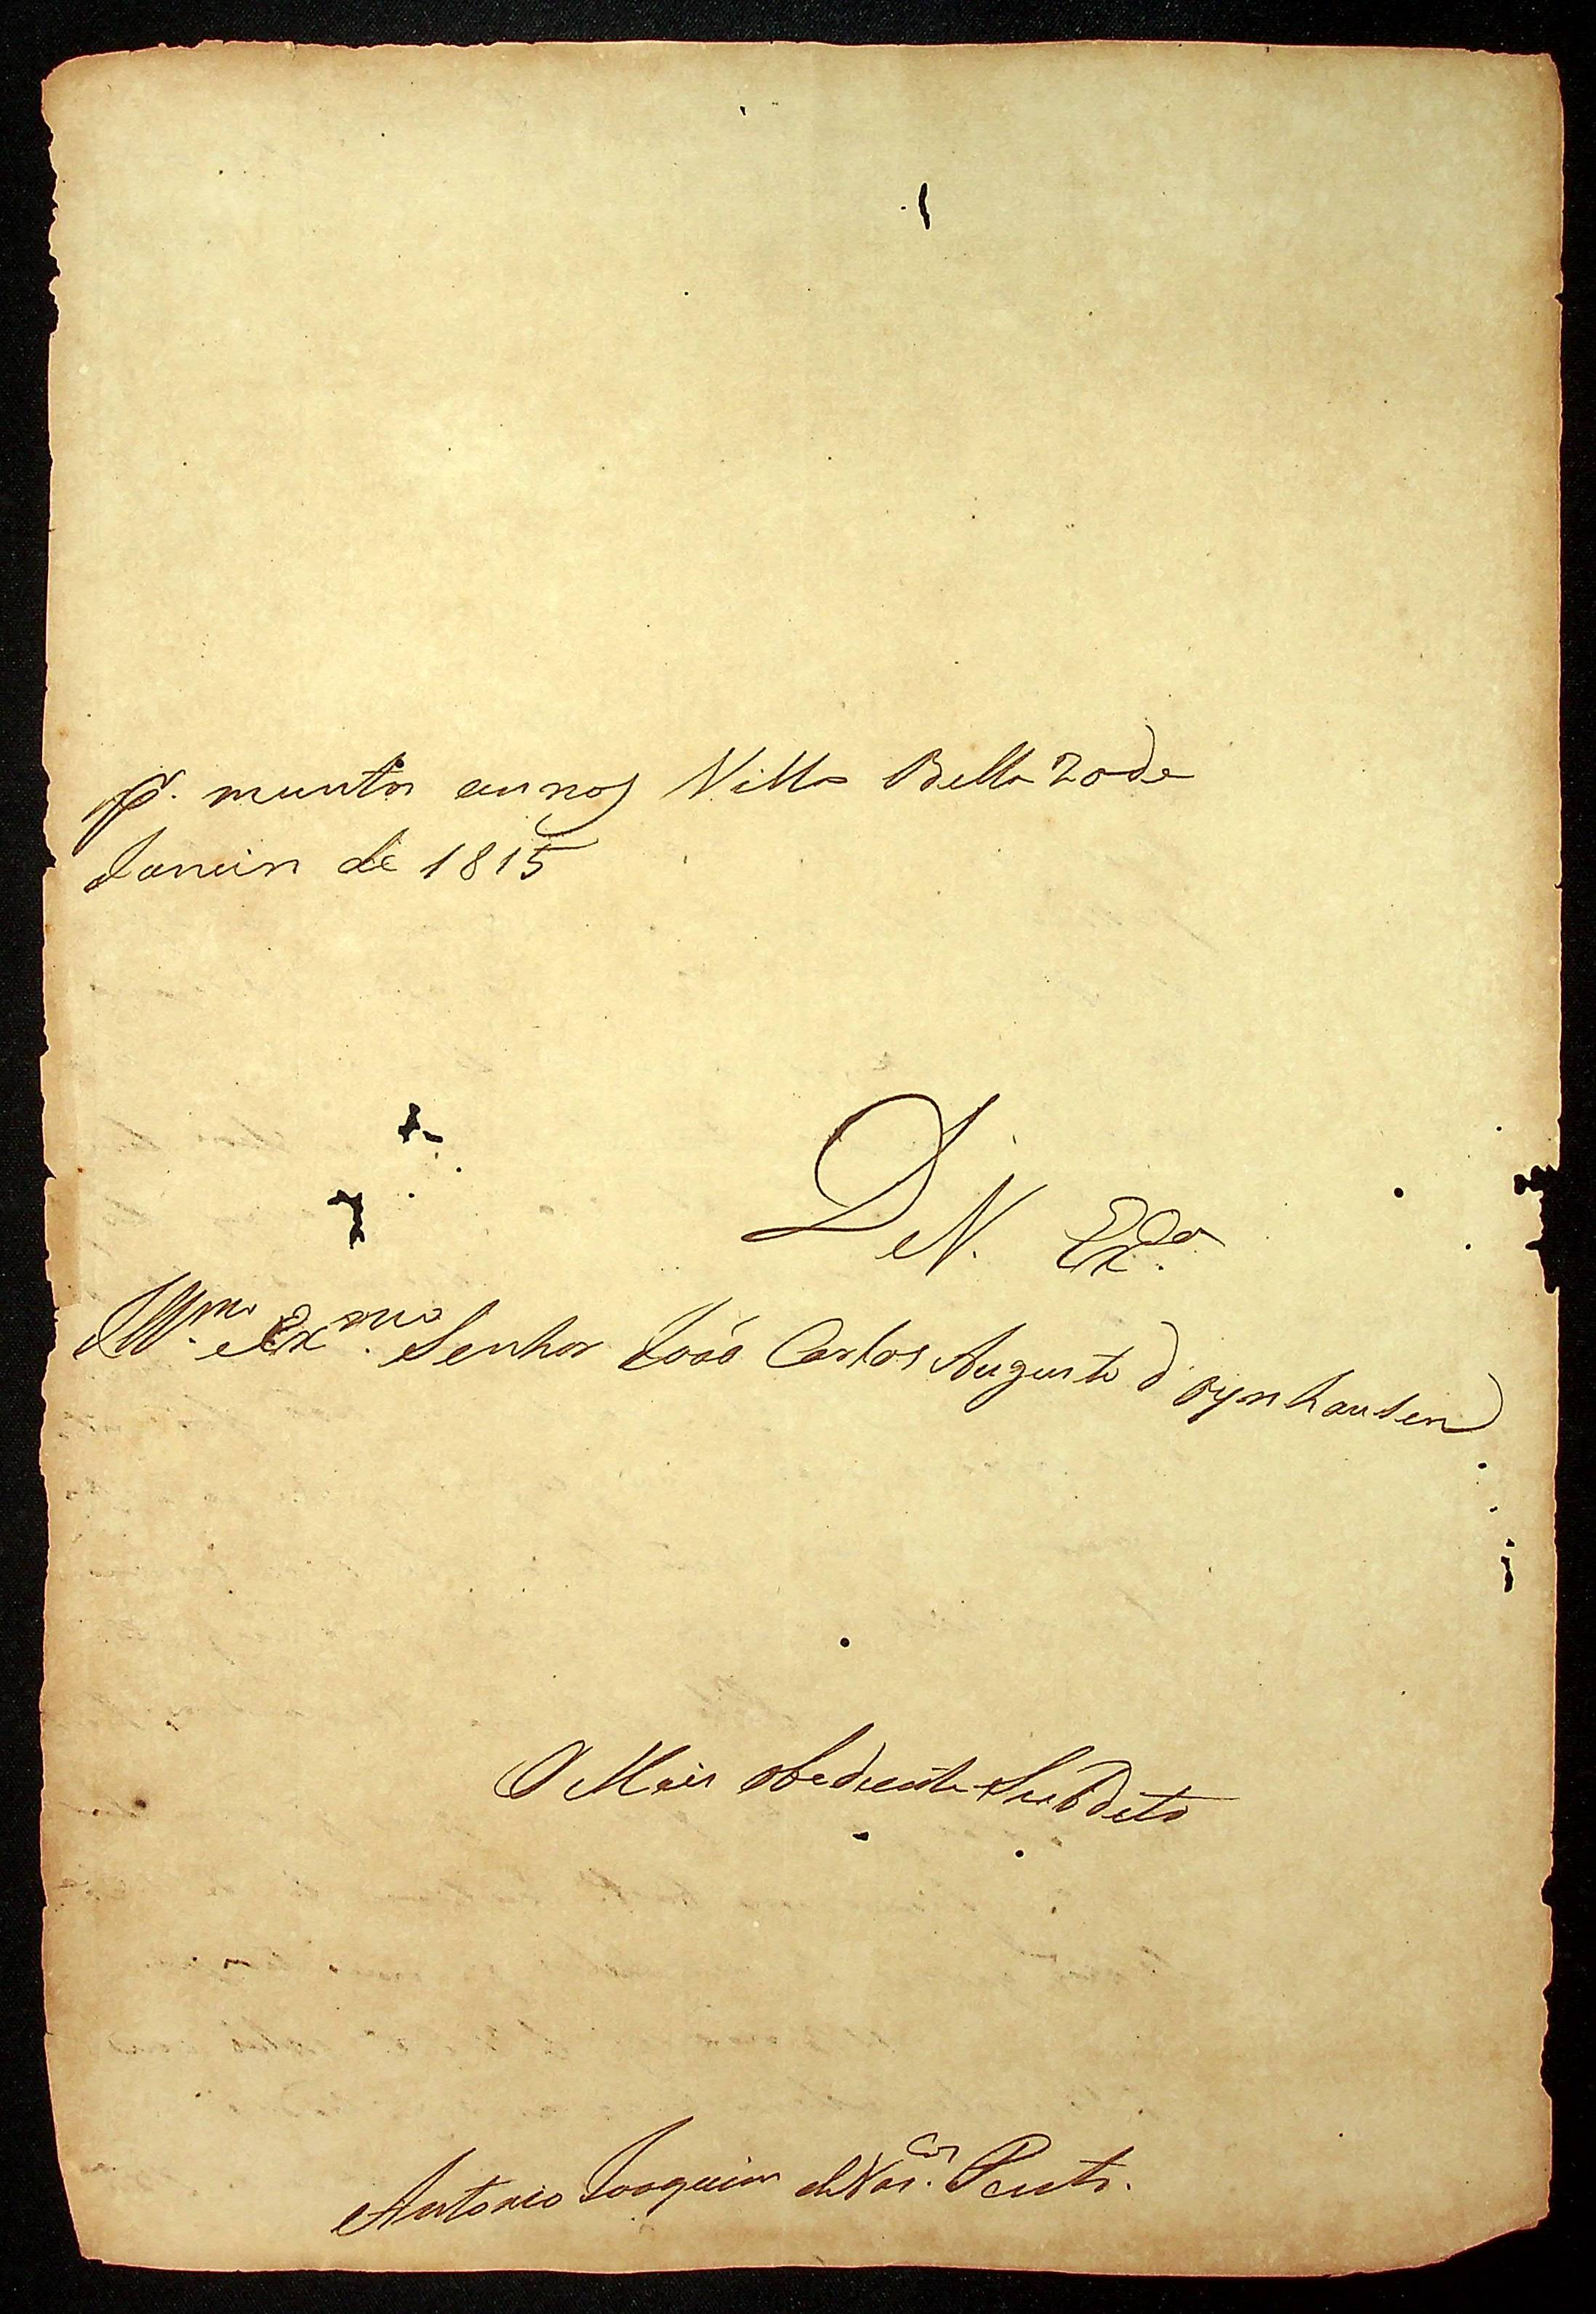 p.ᵃ muntos annos Villa Bella 20 de
Janeiro de 1815
De V. Ex.ᵃ
Ill.ᵐᵒ e Ex.ᵐᵒ Senhor João Carlos Augusto d Oynhausen
O Mais obediente Subdito
Antonio Joaquim